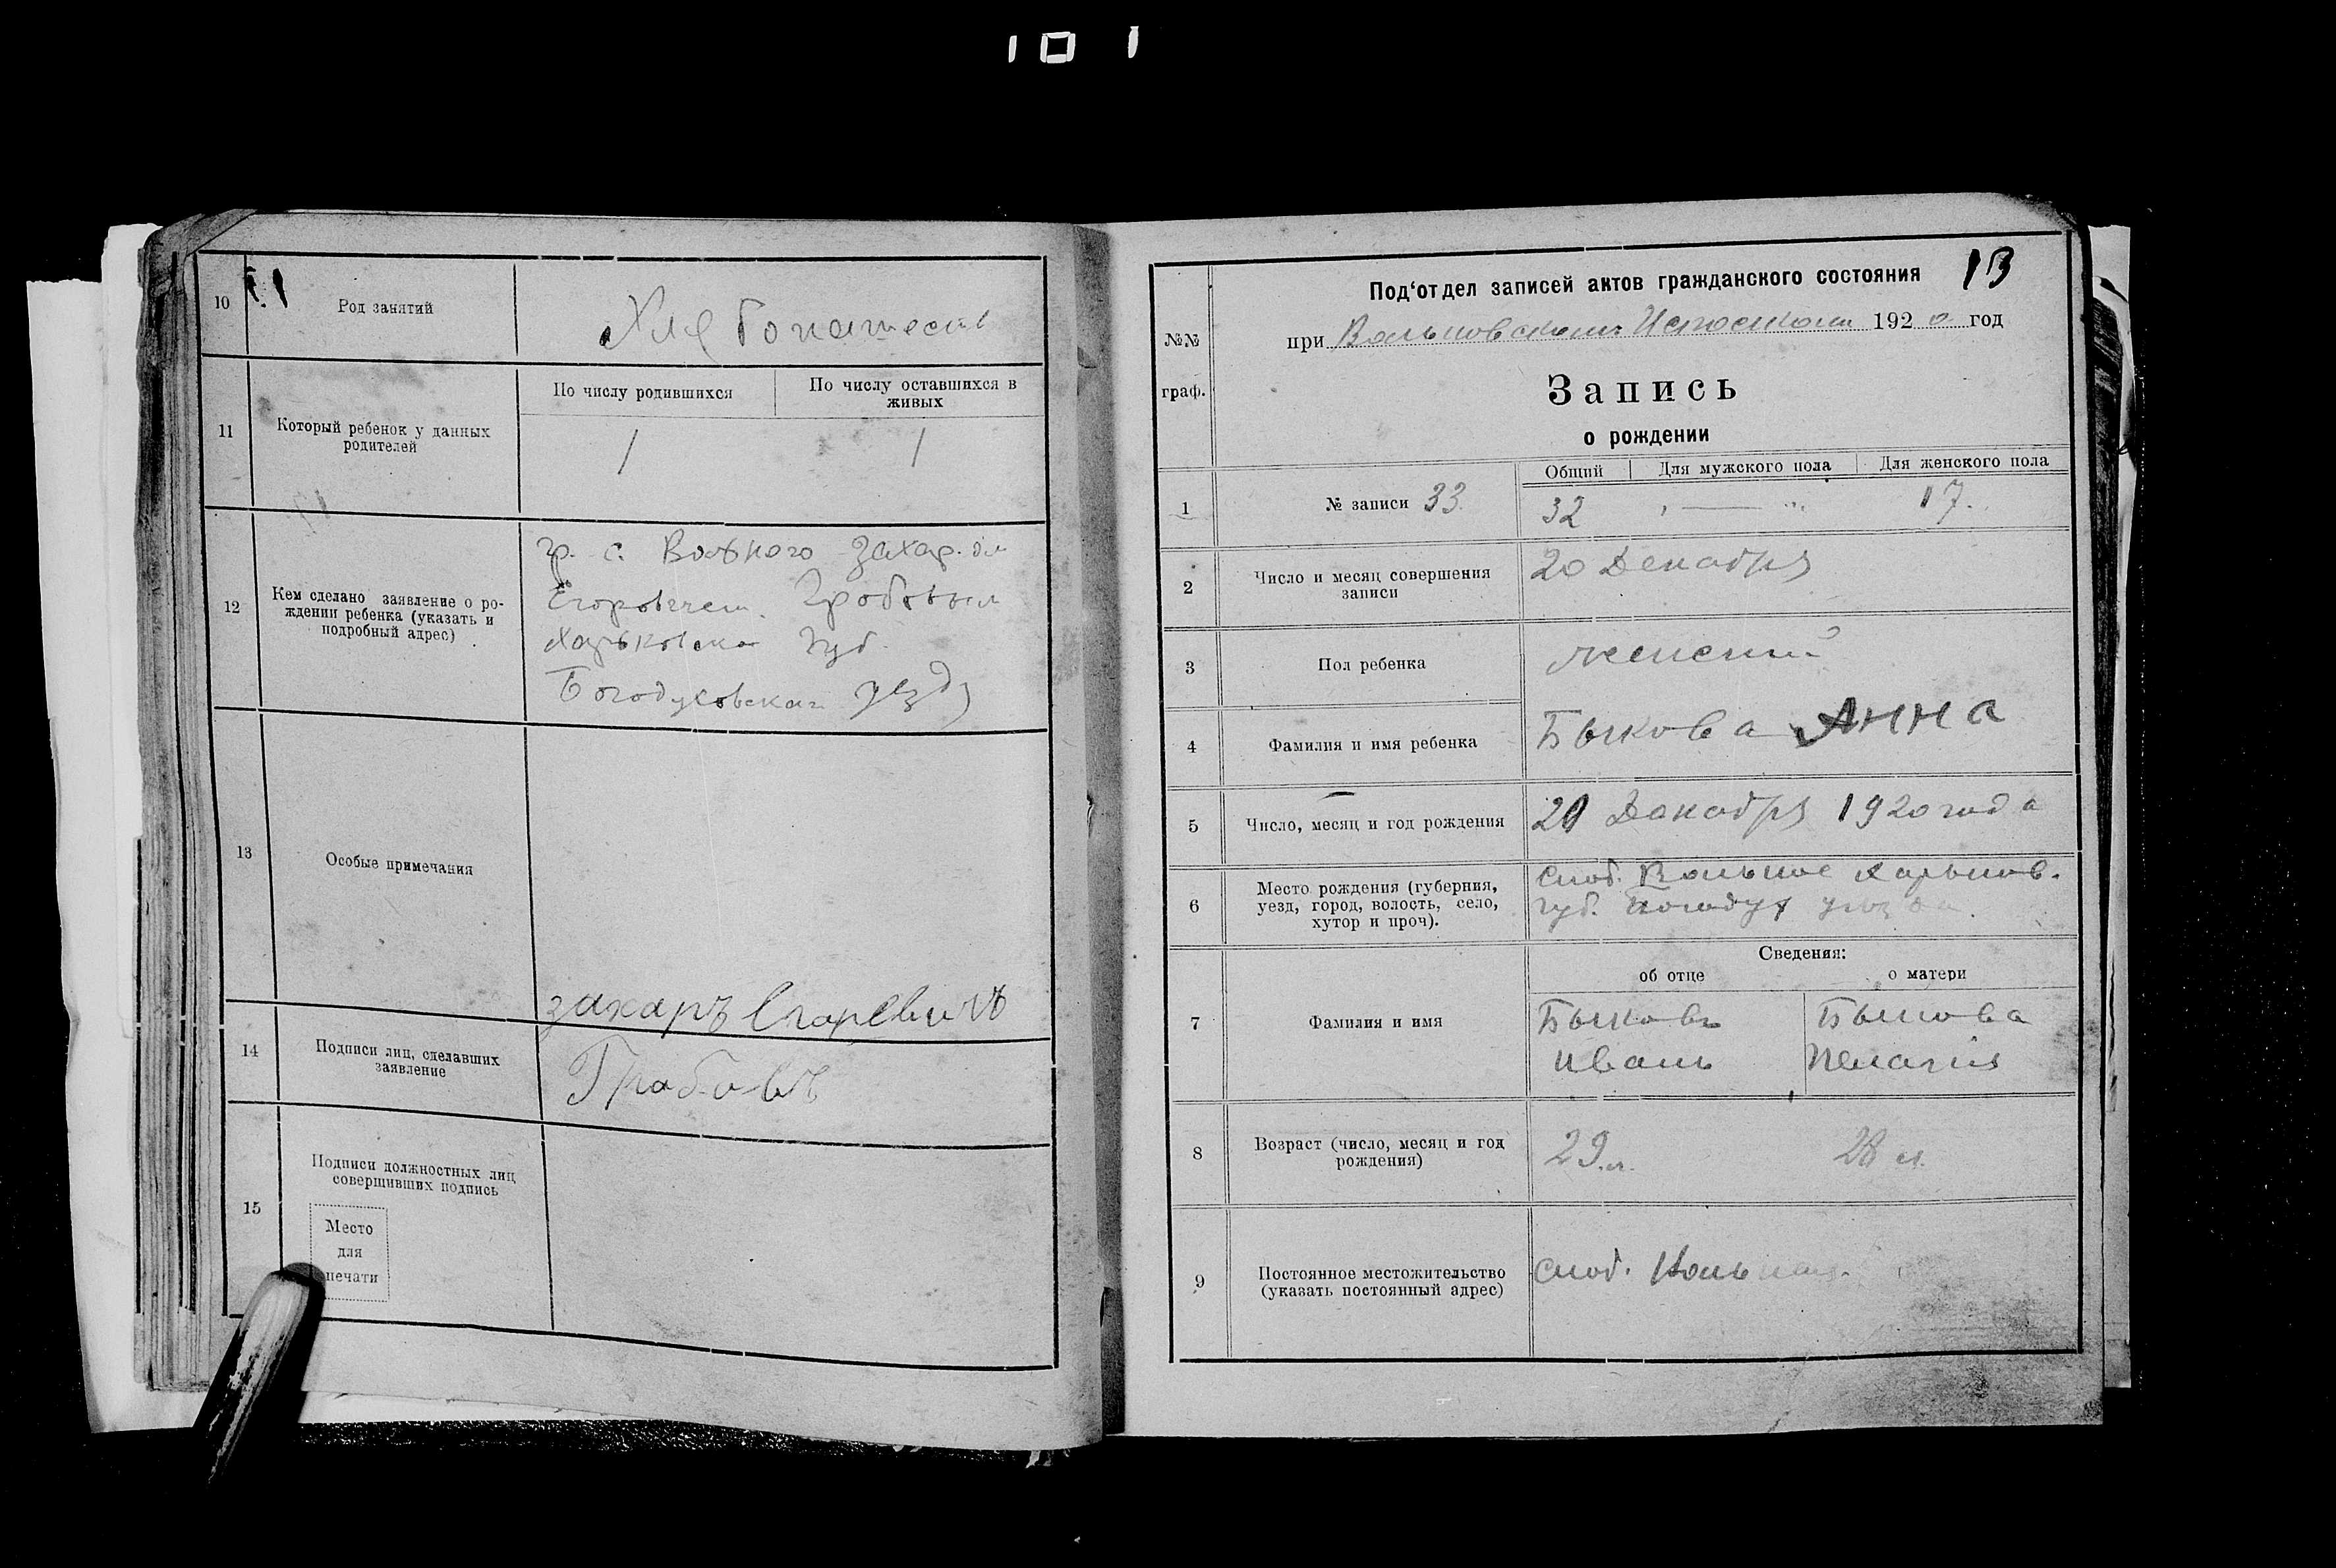 10 1
10
Род занятий
11
Который ребенок у данных
родителей
По числу родившихся
По числу оставшихся в
живых
1
1
12
Кем сделано заявление о ро-
ждении ребенка (указать и
подробный адрес)
гр. с. Вольного Захар.
Егоровичем
Харьковско губ.
Богодуховскаго
13
Особые примечания
14
Подписи лиц, сделавших
заявление
захаръ Егоревичъ
Грабовъ
15
Подписи должностных лиц
совершивших подпись
Место
для
печати
13
№№
граф.
Под'отдел записей актов гражданского состояния
при Вольновском 192 0 год
Запись
о рождении
Общий
Для мужского пола
Для женского пола
1
№ записи 33
32
17.
2
Число и месяц совершения
записи
20 Декабря
3
Пол ребенка
женский
4
Фамилия и имя ребенка
Быкова Анна
5
Число, месяц и год рождения
Декабря 1920 года
6
Место рождения (губерния,
уезд, город, волость, село,
хутор и проч).
слоб. Вольное Харьков.
губ. Богодух уезда.
Сведения:
об отце
о матери
7
Фамилия и имя
Быковъ
Иванъ
Быкова
Пелагия
8
Возраст (число, месяц и год
рождения)
29 л.
28 л.
9
Постоянное местожительство
(указать постоянный адрес)
слоб.